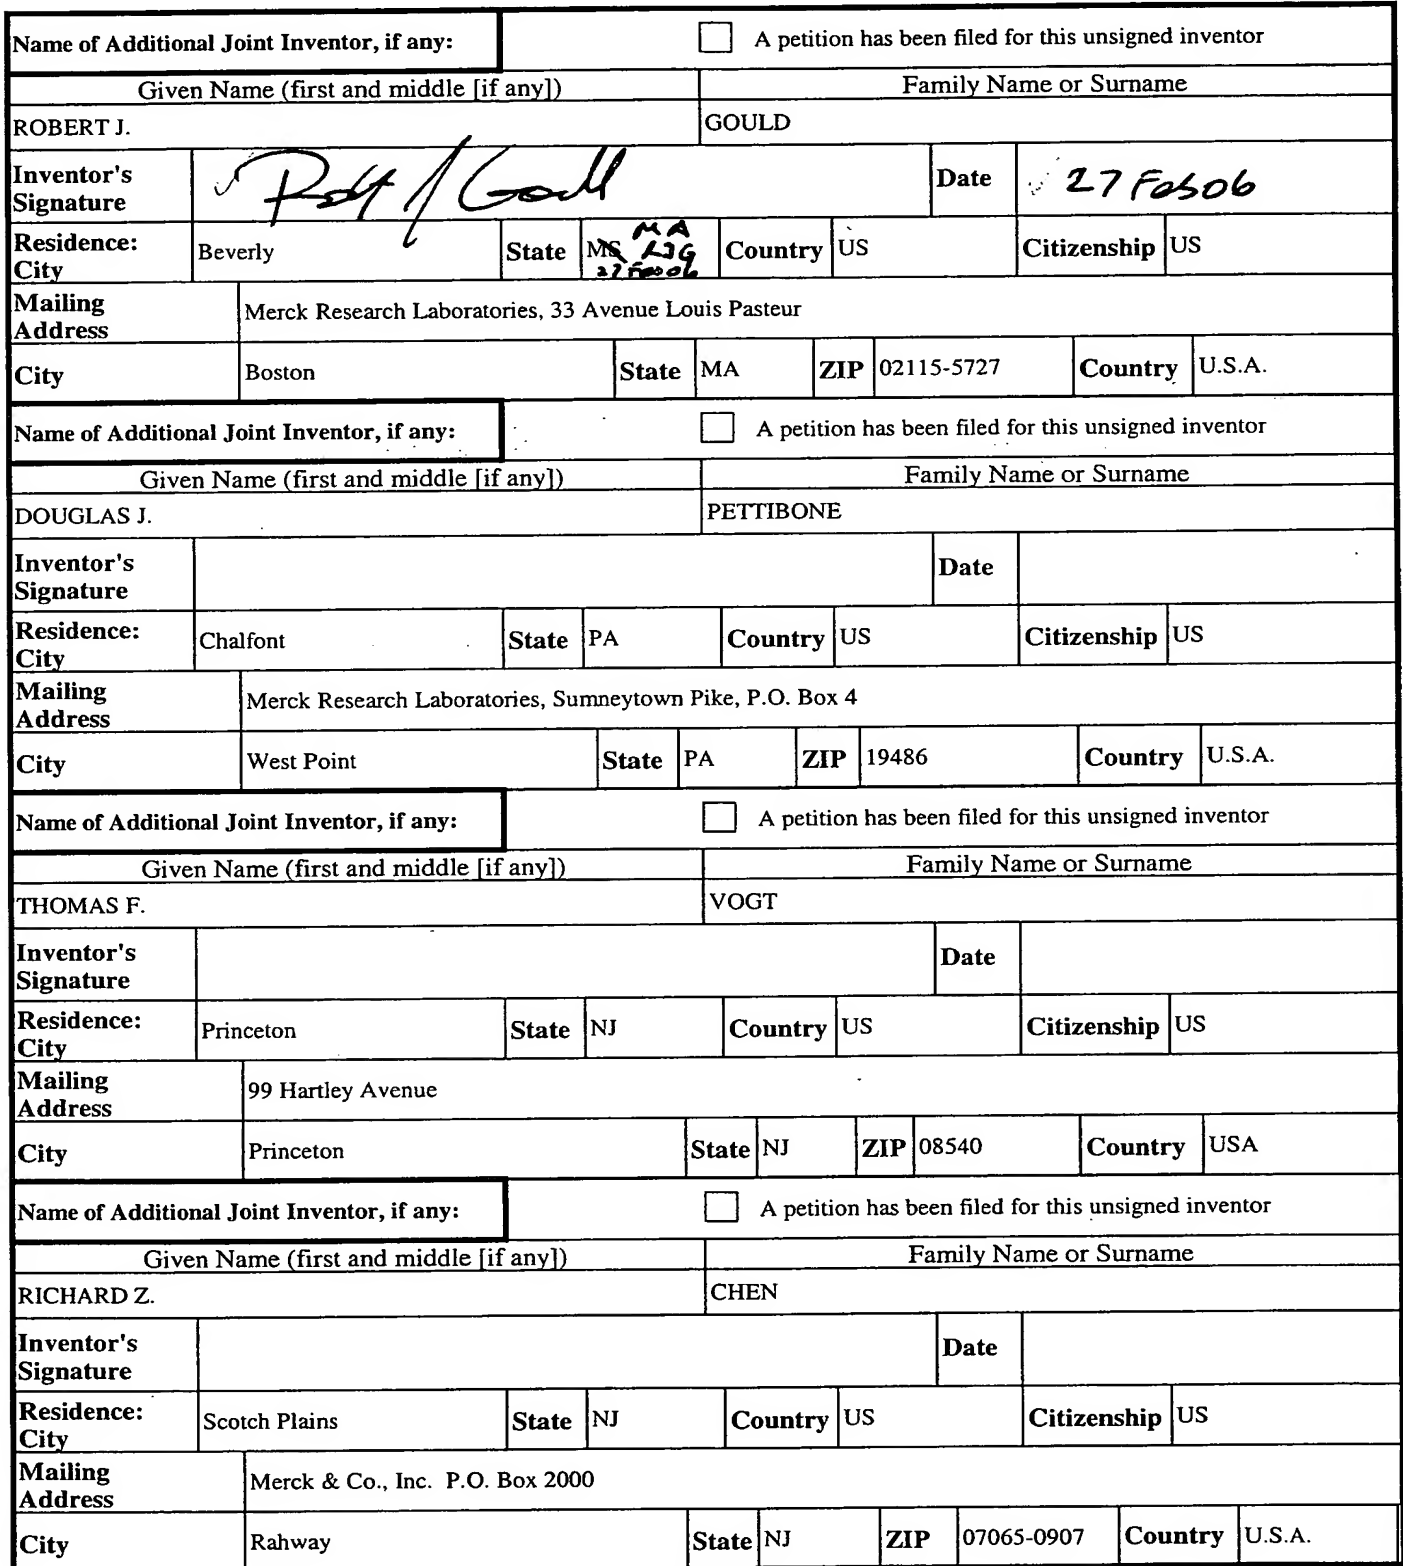 Name of Additional Joint Inventor, if any: A petition has been filed for this unsigned inventor
Given Name (first and middle [if any]) Family Name or Surname
ROBERT J. GOULD
Inventor's Signature Date 27 Feb 06
Residence: City Beverly State MS MA RJG 27 Feb 06 Country US Citizenship US
Mailing Address Merck Research Laboratories, 33 Avenue Louis Pasteur
City Boston State MA ZIP 02115-5727 Country U.S.A.
Name of Additional Joint Inventor, if any: A petition has been filed for this unsigned inventor
Given Name (first and middle [if any]) Family Name or Surname
DOUGLAS J. PETTIBONE
Inventor's Signature Date
Residence: City Chalfont State PA Country US Citizenship US
Mailing Address Merck Research Laboratories, Sumneytown Pike, P.O. Box 4
City West Point State PA ZIP 19486 Country U.S.A.
Name of Additional Joint Inventor, if any: A petition has been filed for this unsigned inventor
Given Name (first and middle [if any]) Family Name or Surname
THOMAS F. VOGT
Inventor's Signature Date
Residence: City Princeton State NJ Country US Citizenship US
Mailing Address 99 Hartley Avenue
City Princeton State NJ ZIP 08540 Country USA
Name of Additional Joint Inventor, if any: A petition has been filed for this unsigned inventor
Given Name (first and middle [if any]) Family Name or Surname
RICHARD Z. CHEN
Inventor's Signature Date
Residence: City Scotch Plains State NJ Country US Citizenship US
Mailing Address Merck & Co., Inc. P.O. Box 2000
City Rahway State NJ ZIP 07065-0907 Country U.S.A.